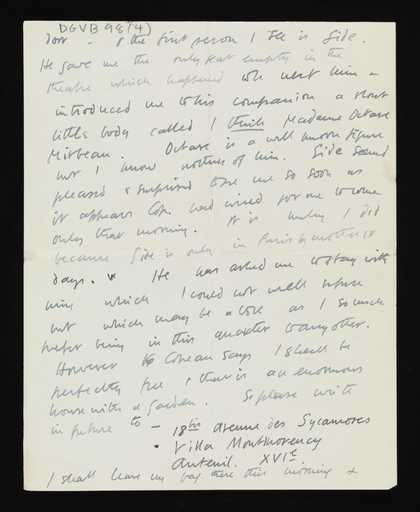 DGVB 98(4)
door - & the first person I see is Gide.
He gave me the only seat empty in the
theatre which happened to be next him &
introduced me to his companion a stout
little body called I think Madame Octave
Mirbeau. Octave is a well known figure
but I know nothing of him. Gide seemed
pleased & surprised to see me so soon as
it appears Cop. had wired for me to come
only that morning. It is lucky I did
because Gide is only in Paris for another 10
days. He has asked me to stay with
him which I could not well refuse
but which may be a bore as I so much
prefer being in this quarter to any other.
However Copeau says I shall be
perfectly free & that is an enormous
house with a garden. So please write
in future to - 18 bis Avenue des Sycamores
Villa Montmorency
Auteuil. XVIe.
I shall leave my bag there this morning &